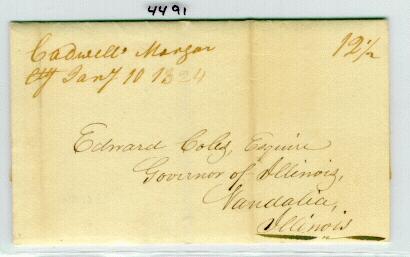 4491
Cadwell's Morgan
Cty Jany 10 1824
12 1/2
Edward Coles, Esquire
Governor of Illinois,
Vandalia,
Illinois